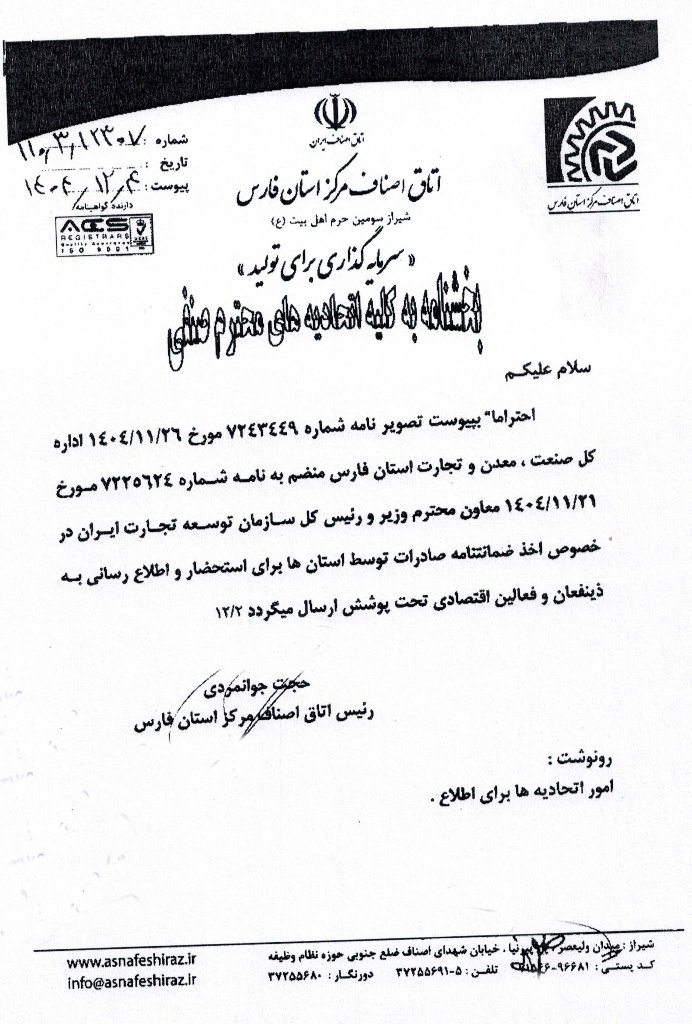 اتاق اصناف ایران
اتاق اصناف مرکز استان فارس
شیراز سومین حرم اهل بیت (ع)
« سرمایه گذاری برای تولید »
اتاق اصناف مرکز استان فارس
شماره :
تاریخ :
پیوست : ۱۴۰۴/۱۲/۴
دارنده گواهینامه
ACS
REGISTRARS
Quality Assurance
ISO 9001
بخشنامه به کلیه اتحادیه های محترم صنفی
سلام علیکم
احتراما" بپیوست تصویر نامه شماره ۷۲۴۳۴۴۹ مورخ ۱۴۰۴/۱۱/۲۶ اداره
کل صنعت ، معدن و تجارت استان فارس منضم به نامه شماره ۷۲۲۵۶۲۴ مورخ
۱۴۰۴/۱۱/۲۱ معاون محترم وزیر و رئیس کل سازمان توسعه تجارت ایران در
خصوص اخذ ضمانتنامه صادرات توسط استان ها برای استحضار و اطلاع رسانی به
ذینفعان و فعالین اقتصادی تحت پوشش ارسال میگردد ۱۲/۲
حجت جوانمردی
رئیس اتاق اصناف مرکز استان فارس
رونوشت :
امور اتحادیه ها برای اطلاع .
شیراز : میدان ولیعصر ، پیرنیا ، خیابان شهدای اصناف ضلع جنوبی حوزه نظام وظیفه
کد پستی : ۹۶۶۸۱ تلفن : ۵-۳۷۲۵۵۶۹۱ دورنگار : ۳۷۲۵۵۶۸۰
www.asnafeshiraz.ir
info@asnafeshiraz.ir